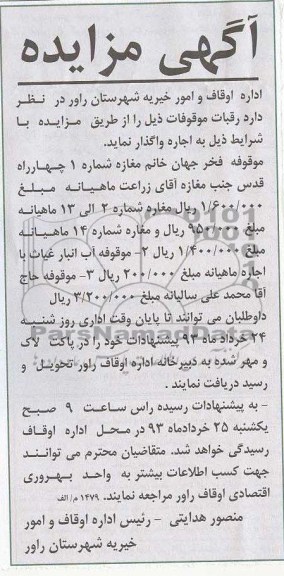 آگهی مزایده
اداره اوقاف و امور خیریه شهرستان راور در نظر
دارد رقبات موقوفات ذیل را از طریق مزایده با
شرایط ذیل به اجاره واگذار نماید.
موقوفه فخر جهان خانم مغازه شماره ۱ چهارراه
قدس جنب مغازه آقای زراعت ماهیانه مبلغ
۱/۶۰۰/۰۰۰ ریال مغازه شماره ۲ الی ۱۳ ماهیانه
مبلغ ۹۵۰/۰۰۰ ریال و مغازه شماره ۱۴ ماهیانه
مبلغ ۱/۴۰۰/۰۰۰ ریال ۲- موقوفه آب انبار غیاث با
اجاره ماهیانه مبلغ ۲۰۰/۰۰۰ ریال ۳- موقوفه حاج
آقا محمد علی سالیانه مبلغ ۳/۲۰۰/۰۰۰ ریال
داوطلبان می توانند تا پایان وقت اداری روز شنبه
۲۴ خرداد ماه ۹۳ پیشنهادات خود را در پاکت لاک
و مهر شده به دبیرخانه اداره اوقاف راور تحویل و
رسید دریافت نمایند .
- به پیشنهادات رسیده راس ساعت ۹ صبح
یکشنبه ۲۵ خردادماه ۹۳ در محل اداره اوقاف
رسیدگی خواهد شد. متقاضیان محترم می توانند
جهت کسب اطلاعات بیشتر به واحد بهروری
اقتصادی اوقاف راور مراجعه نمایند. ۱۴۷۹ م/الف
منصور هدایتی - رئیس اداره اوقاف و امور
خیریه شهرستان راور
ParsNamadData